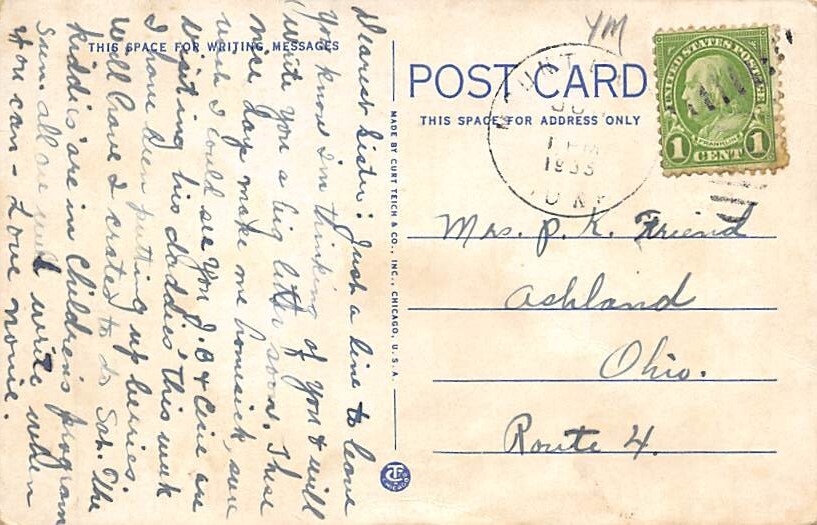 THIS SPACE FOR WRITING MESSAGES
Dearest Sister: Just a line to leave
you know I'm thinking of you & will
write you a big letter soon. These
nice days make me homesick, sure
wish I could see you J.B & are
visiting his daddies' this week
I have been putting up berries.
Will have 2 crates to do Sat. The
kiddies are in Children's program
Sun. all are well write when
you can - Love
MADE BY CURT TEICH & CO., INC., CHICAGO, U.S.A.
YM
POST CARD
THIS SPACE FOR ADDRESS ONLY
1 PM
UNITED STATES POSTAGE
FRANKLIN
1 CENT 1
Mrs. P. K. Friend
Ashland
Ohio.
Route 4.